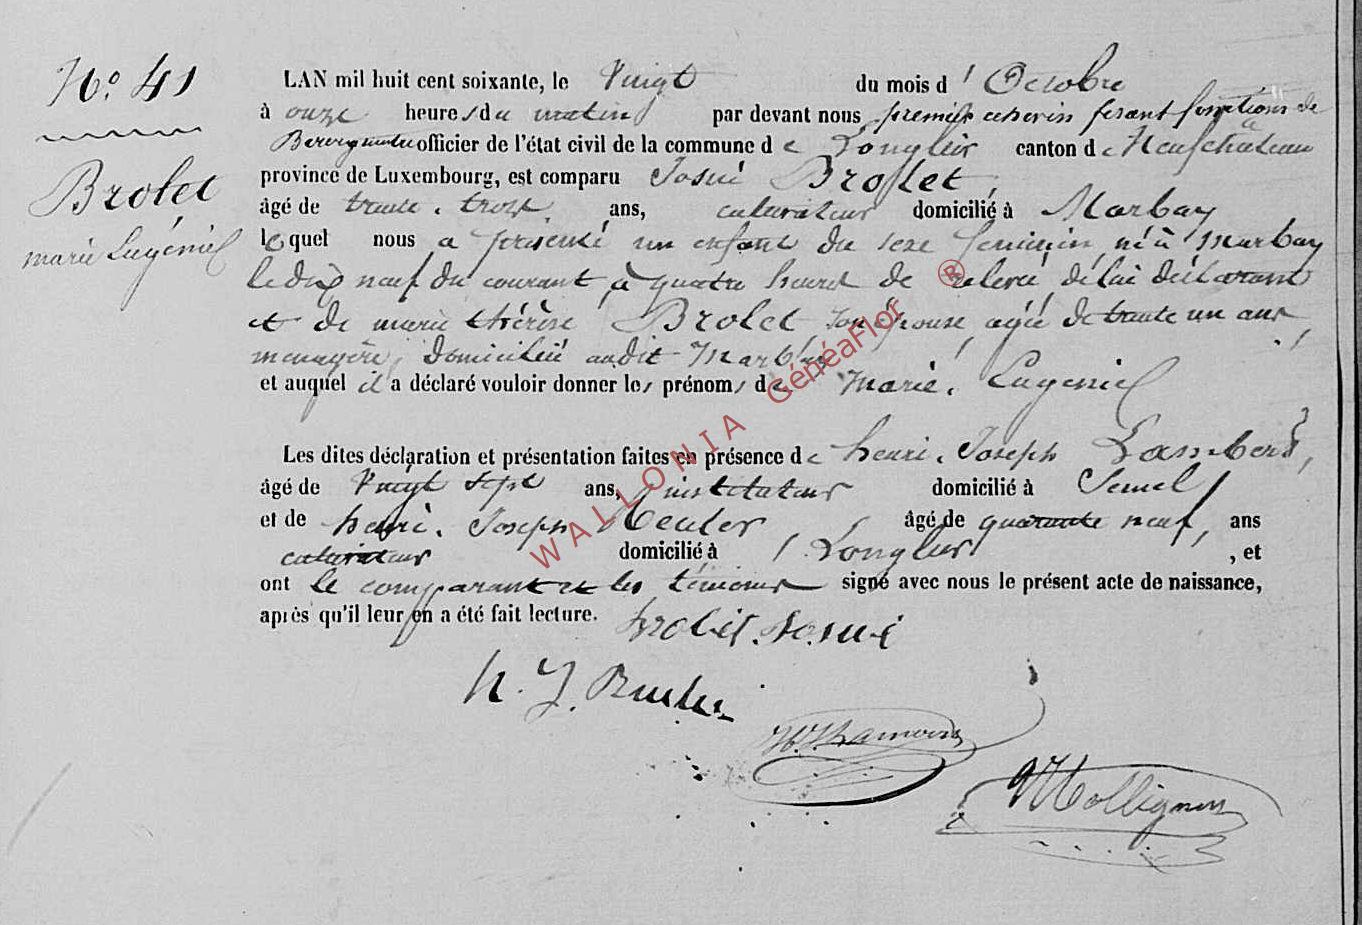 No. 41
Brolet
marie Eugénie
LAN mil huit cent soixante, le Vingt du mois d'Octobre
à onze heures du matin par devant nous premier échevin fesant fonctions de
Bourgmestre officier de l'état civil de la commune de Longlier canton de Neufchateau
province de Luxembourg, est comparu Josué Brolet,
âgé de trente-trois ans, cultivateur domicilié à Marbay
lequel nous a présenté un enfant du sexe féminin, né à Marbay
le dix neuf du courant, à quatre heures de relevée, de lui déclarant
et de marie thérèse Brolet son épouse, agée de trente un ans,
menagère, domiciliée audit Marbay
et auquel il a déclaré vouloir donner les prénoms de Marie, Eugénie
Les dites déclaration et présentation faites en présence de henri, Joseph
âgé de Vingt sept ans, instituteur domicilié à Semel
et de henri, Joseph âgé de quarante neuf, ans
cultivateur domicilié à Longlier, et
ont le comparant et les témoins signé avec nous le présent acte de naissance,
après qu'il leur en a été fait lecture.
brolet Josué
h. J.
Collignon
WALLONIA GénéaFlor ®